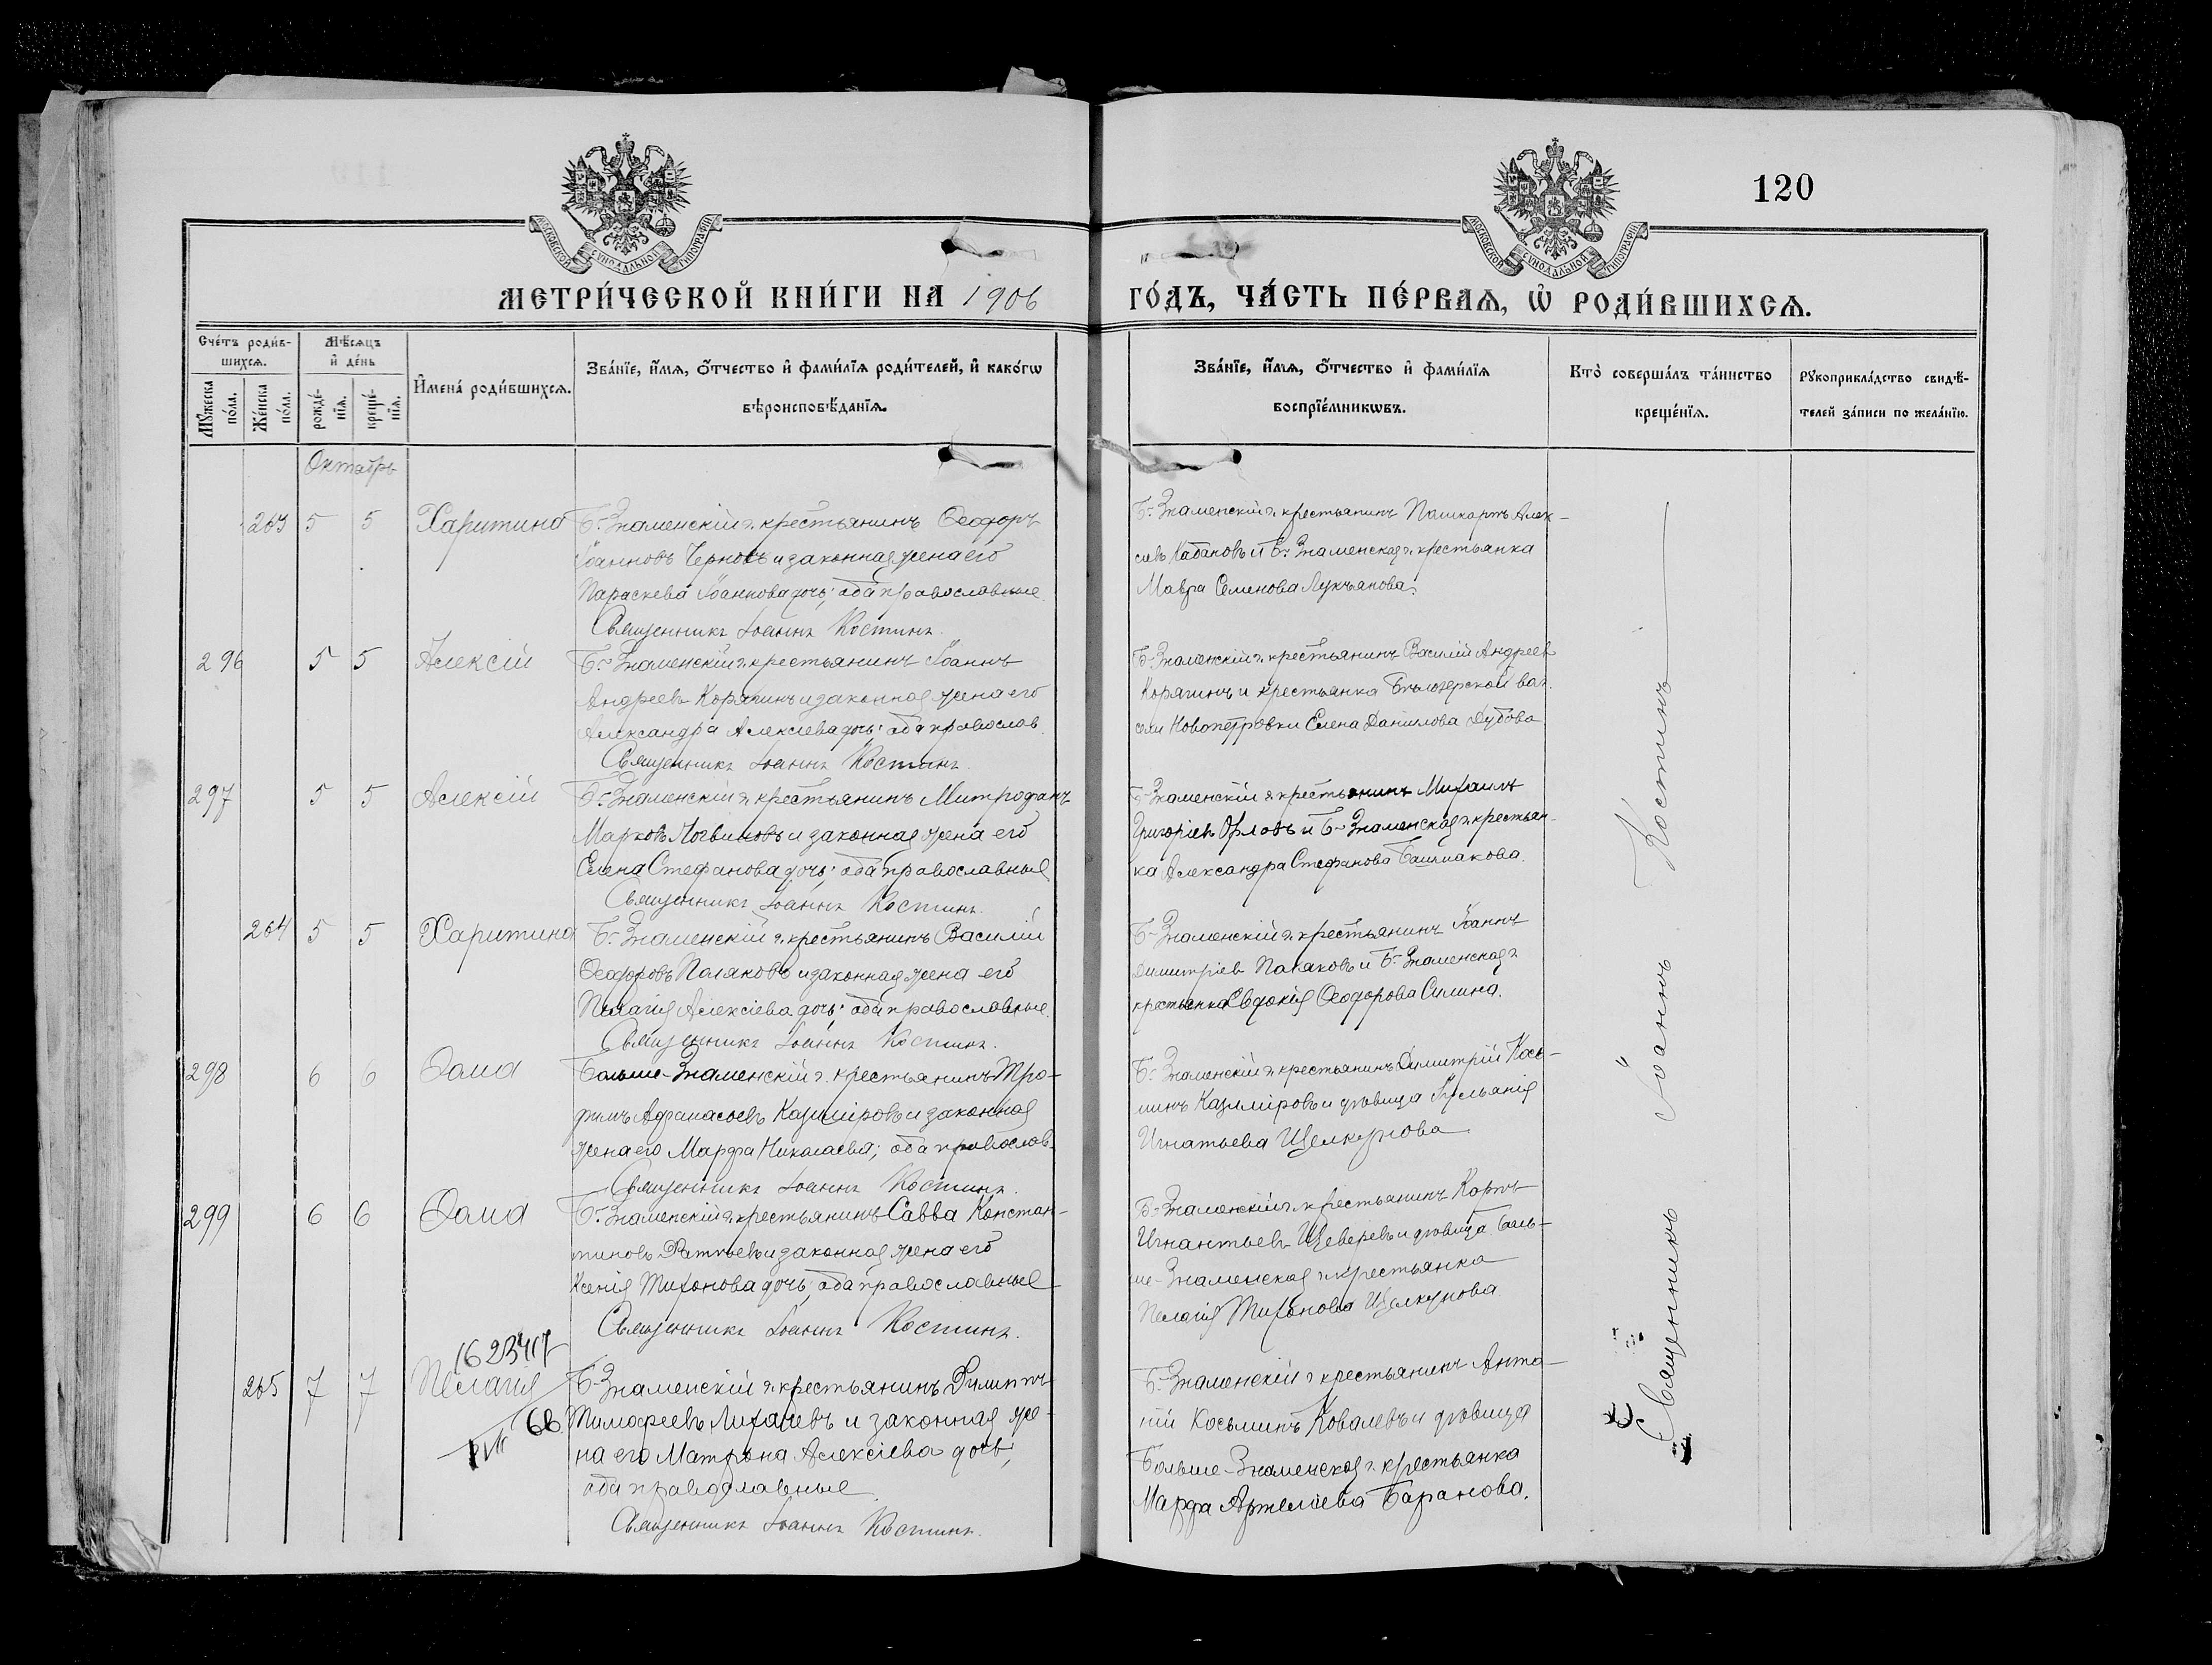 120
МОСКОВСКОЙ СѴНОДАЛЬНОЙ ТИПОГРАФІИ
МОСКОВСКОЙ СѴНОДАЛЬНОЙ ТИПОГРАФІИ
МЕТРИ́ЧЕСКОЙ КНИ́ГИ НА 1906
ГО́ДЪ, ЧА́СТЬ ПЕ́РВАЯ, Ѡ҆ РОДИ́ВШИХСЯ.
Сче́тъ роди́в-
шихся.
Мꙋ́жеска по́ла.
Же́нска по́ла.
Мѣ́сяцъ
и҆ де́нь
рожде́-
нїя.
креще́-
нїя.
И҆мена̀ роди́вшихся.
Зва́нїе, и҆́мя, ѻ҆́тчество и҆ фами́лїя роди́телей, и҆ како́гѡ
вѣроисповѣ́данїя.
Зва́нїе, и҆́мя, ѻ҆́тчество и҆ фами́лїя
воспрїе́мникѡвъ.
Кто̀ соверша́лъ та́инство
креще́нїя.
Рꙋкоприкла́дство свидѣ́-
телей за́писи по жела́нїю.
Октябрь
263 5 5 Харитина
Б.-Знаменскій крестьянинъ Ѳеодоръ
Іоанновъ Черновъ и законная жена его
Параскева Іоаннова дочь; оба православные.
Священникъ Іоаннъ Костинъ.
Б.-Знаменскій крестьянинъ Алек-
Кабановъ и Б.-Знаменская крестьянка
Мавра Семенова Лукьянова.
296 5 5 Алексій
Б.-Знаменскій крестьянинъ Іоаннъ
Андреевъ Корягинъ и законная жена его
Александра Алексіева дочь; оба православ.
Священникъ Іоаннъ Костинъ.
Б.-Знаменскій крестьянинъ Василій Андреевъ
Корягинъ и крестьянка Бѣлозерской вол.
Новопетровки Елена Данилова Дубова
297 5 5 Алексій
Б.-Знаменскій крестьянинъ Митрофанъ
Марковъ Логвиновъ и законная жена его
Елена Стефанова дочь; оба православные
Священникъ Іоаннъ Костинъ.
Б.-Знаменскій крестьянинъ Михаилъ
Григоріевъ Орловъ и Б.-Знаменская крестьян-
ка Александра Стефанова Башмакова.
264 5 5 Харитина
Б.-Знаменскій крестьянинъ Василій
Ѳеодоровъ Поляковъ и законная жена его
Пелагія Алексіева дочь; оба православные.
Священникъ Іоаннъ Костинъ.
Б.-Знаменскій крестьянинъ Іоаннъ
Димитріев Поляковъ и Б.-Знаменская
крестьянка Евдокія Ѳеодорова Силина.
298 6 6 Ѳома
Больше-Знаменскій крестьянинъ Тро-
фимъ Афанасьевъ Казиміровъ и законная
жена его Марфа Николаева; оба православ.
Священникъ Іоаннъ Костинъ.
Б.-Знаменскій крестьянинъ Димитрій Кось-
минъ Казиміровъ и дѣвица Іуліанія
Игнатьева Щелкунова
299 6 6 Ѳома
Б.-Знаменскій крестьянинъ Савва Констан-
тиновъ и законная жена его
Ксенія Тихонова дочь; оба православные
Священникъ Іоаннъ Костинъ.
Б.-Знаменскій крестьянинъ Карпъ
Игнантьевъ Щеверевъ и дѣвица Боль-
ше-Знаменская крестьянка
Пелагія Тихонова Щелкунова
265 7 7 Пелагія
Б.-Знаменскій крестьянинъ Филиппъ
Тимофеевъ Лихачевъ и законная же-
на его Матрона Алексіева дочь;
оба православные
Священникъ Іоаннъ Костинъ.
Б.-Знаменскій крестьянинъ Анто-
ній Косьминъ Ковалевъ и дѣвица
Больше-Знаменская крестьянка
Марфа Баранова.
Священникъ Іоаннъ Костинъ